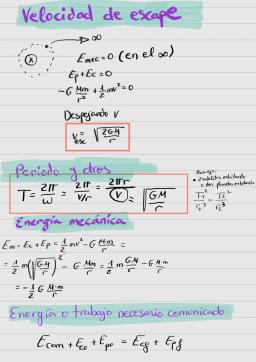 Velocidad de escape
→ ∞
x
Emec = 0 (en el ∞)
Ep + Ec = 0
-G Mm/r² + 1/2 mv² = 0
Despejando v
v esc = √(2GM/r)
Periodo y otros
T = 2π/ω = 2π/(v/r) = 2πr/(v) = √(GM/r)
2 satélites orbitando
o dos planetas orbitando
T₁²/r₁³ = T₂²/r₂³
Energía mecánica
Em = Ec + Ep = 1/2 mv² - G Mm/r =
= 1/2 m(√(GM/r))² - G Mm/r = 1/2 m GM/r - G Mm/r
= -1/2 G M·m/r
Energía o trabajo necesario comunicado
Ecom + Eco + Epo = Ecf + Epf